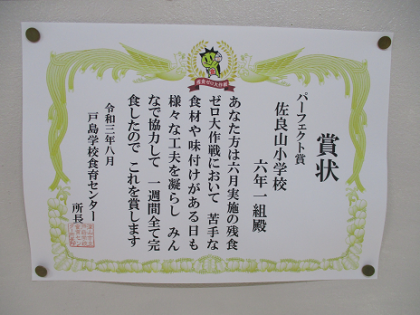 賞状
パーフェクト賞
佐良山小学校
六年一組殿
あなた方は六月実施の残食
ゼロ大作戦において 苦手な
食材や味付けがある日も
様々な工夫を凝らし みん
なで協力して 一週間全て完
食したので これを賞します
令和三年八月
戸島学校食育センター
所長